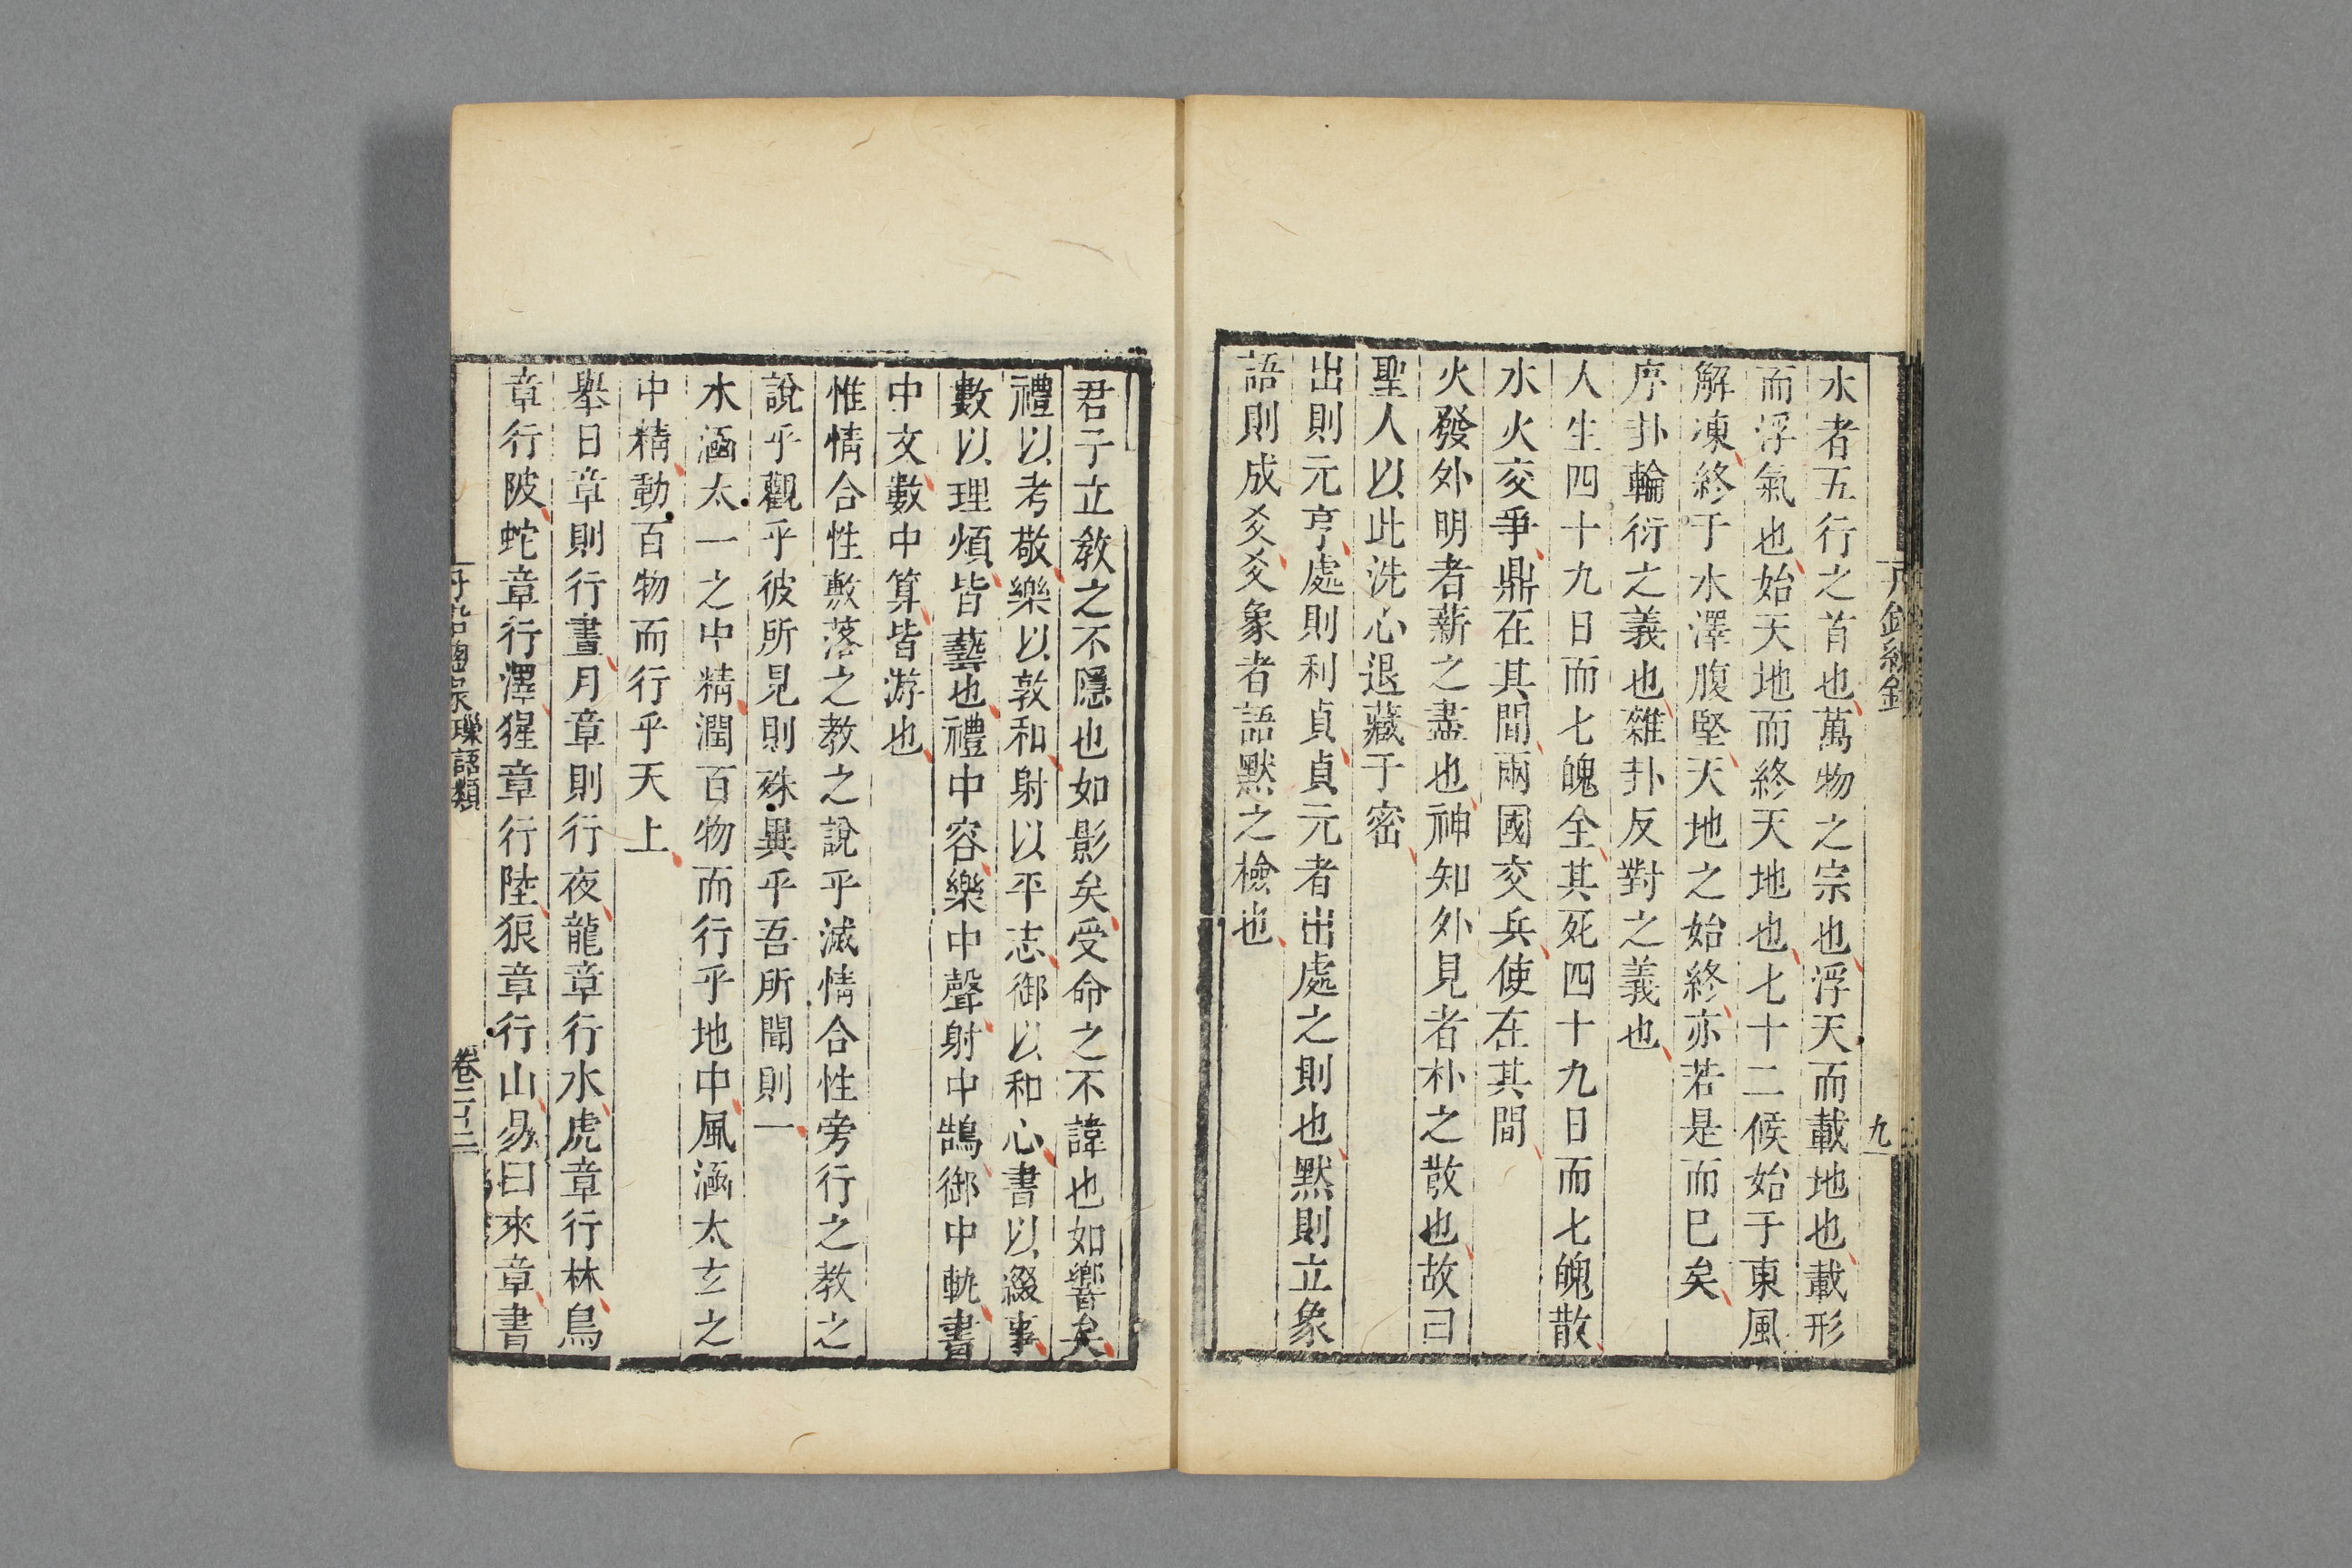 丹鉛總錄
九
水者五行之首也萬物之宗也浮天而載地也載形
而浮氣也始天地而終天地也七十二候始于東風
解凍終于水澤腹堅天地之始終亦若是而巳矣
序卦輪衍之義也雜卦反對之義也
人生四十九日而七魄全其死四十九日而七魄散
水火交爭鼎在其間兩國交兵使在其間
火發外明者薪之盡也神知外見者朴之散也故曰
聖人以此洗心退藏于密
出則元亨處則利貞貞元者出處之則也默則立象
語則成爻爻象者語默之檢也
君子立教之不隱也如影矣受命之不諱也如響矣
禮以考敬樂以敦和射以平志御以和心書以綴事
數以理煩皆藝也禮中容樂中聲射中鵠御中軌書
中文數中算皆游也
惟情合性敷落之教之說乎滅情合性旁行之教之
說乎觀乎彼所見則殊異乎吾所聞則一
水涵太一之中精潤百物而行乎地中風涵太玄之
中精動百物而行乎天上
舉日章則行晝月章則行夜龍章行水虎章行林鳥
章行陂蛇章行澤猩章行陸狼章行山易曰來章書
瑣語類